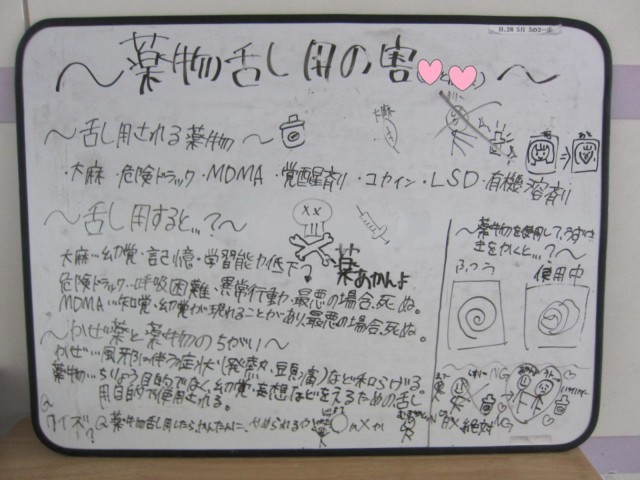 ～薬物乱用の害～
～乱用される薬物～
・大麻・危険ドラッグ・MDMA・覚醒剤・コカイン・LSD・有機溶剤
～乱用すると…？～
大麻…幻覚・記憶・学習能力低下
薬あかんよ
危険ドラッグ…呼吸困難、異常行動、最悪の場合、死ぬ。
MDMA…知覚・幻覚が現れることがあり、最悪の場合、死ぬ。
～かぜ薬と薬物のちがい～
かぜ…風邪に伴う症状(発熱、頭痛)など和らげる。
薬物…ちりょう目的でなく、幻覚・妄想などを
用目的で使用される。
クイズ
Q 薬物乱用したら、かんたんに、やめられるか
○か×か
～薬物を使用して、うずまきをかくと…？～
ふつう
使用中
NG
絶対NG